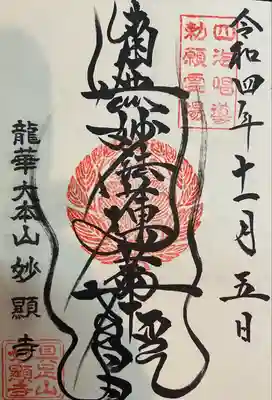 令和四年十一月五日
四海唱導
勅願霊場
南無妙法蓮華経
龍華大本山妙顕寺